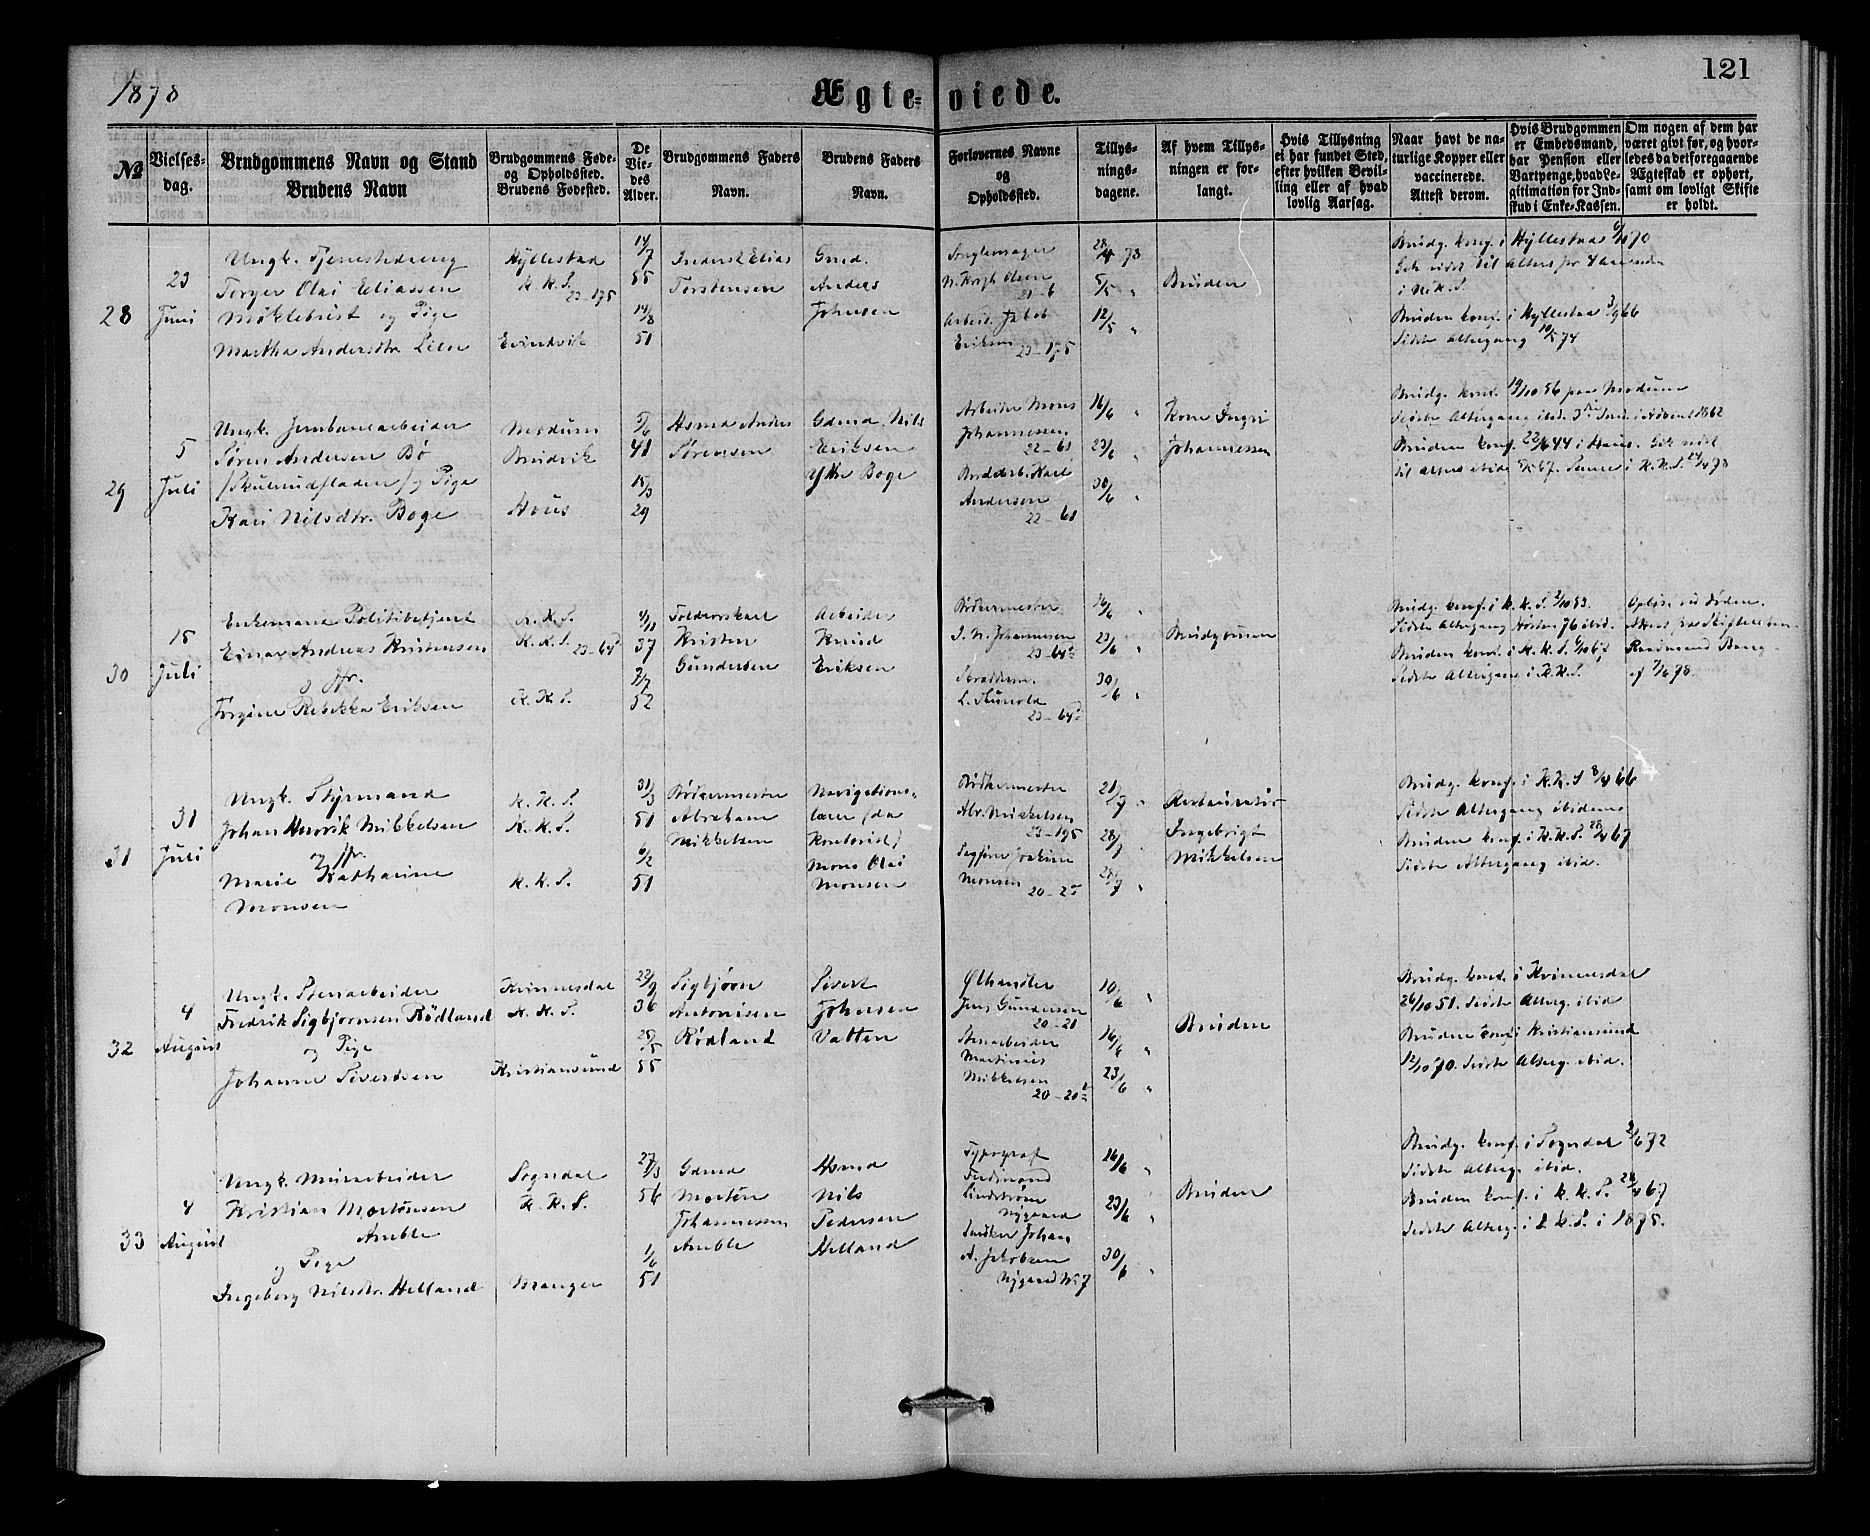 1878
Ægte-viede.
121
№
Vielses-
dag.
Brudgommens Navn og Stand
Brudens Navn
Brudgommens Føde-
og Opholdssted.
Brudens Fødested.
De
Vie-
des
Alder.
Brudgommens Faders
Navn.
Brudens Faders
Navn.
Forlovernes Navne
og
Opholdssted.
Tillys-
nings-
dagene.
Af hvem Tillys-
ningen er for-
langt.
Hvis Tillysning
ei har fundet Sted,
efter hvilken Bevil-
ling eller af hvad
lovlig Aarsag.
Naar havt de na-
turlige Kopper eller
vaccinerede.
Attest derom.
Hvis Brudgommen
er Embedsmand,
har Pension eller
Vartpenge, hvad Le-
gitimation for Ind-
skud i Enke-Kassen.
Om nogen af dem har
været gift før, og hvor-
ledes da det foregaaende
Ægteskab er ophørt,
samt om lovligt Skifte
er holdt.
28
23
Juni
Ungk. Tjenestedreng
Torger Olai Eliassen
Myklebust og Pige
Martha Andersdtr.
Hyllestad
K. K. S.
23-175
Evindvik
14/7
55
14/8
51
Elias
Torstensen
Gmd.
Anders
Johnsen
N. Krogh Olsen
21-6
Arbeid. Jakob
Eriksen 23-175
28/4 78
5/5 "
12/5 "
Bruden
Brudg. conf. i Hyllestad
Gik sidst til Alters for 4 Aar siden
i N.K.S.
Bruden conf. i Hyllestad 3/9 66
Sidste Altergang 10/5 74
29
5
Juli
Ungk. Jernbanearbeider
Søren Andersen Bø
og Pige
Kari Nilsdtr. Boge
Modum
Brudvik
Hous
5/6
41
15/3
29
Hsmd Anders
Sørensen
Gdmd Nils
Eriksen
Ytre Boge
Arbeider Mons
Johannessen
22-61
Karl
Andersen
22-61
16/6 "
23/6 "
30/6 "
Kone Ingri
Johannessen
Brudg. conf. 19/10 56 paa Modum
Sidste Altergang ibid. 3die Snd. i Advent 1862
Bruden conf. 22/6 44 i Haus. Gik sidst
til Alters ibid. 1867. Senere i K.K.S. 24/4 78
30
15
Juli
Enkemand Politibetjent
Einar Andreas Kristensen
og Jfr.
Jørgine Rebekka Eriksen
K. K. S.
K. K. S. 23-64
K. K. S.
4/11
37
7/7
52
Toldoverskarl
Kristen
Gundersen
Arbeider
Knud
Eriksen
Bødkermester
J. N. Johannesen
23-64
L. Sunold
23-64
16/6 "
23/6 "
30/6 "
Brudgommen
Brudg. conf. i K.K.S. 2/10 53.
Sidste Altergang Høsten 76 ibid.
Bruden conf. i K.K.S. 6/10 67
Sidste Altergang i K.K.S.
Opløst ved Døden.
Attest fra Skifteretten
af 7/6 78.
31
31
Juli
Ungk. Styrmand
Johan Henrik Mikkelsen
og Jfr.
Marie Katharine
Monsen
K. K. S.
K. K. S.
K. K. S.
31/3
51
6/2
51
Bødkermester
Abraham
Mikkelsen
Navigations-
lærer (da
Kontorist)
Mons Olai
Monsen
Bødkermester
Abr. Mikkelsen
23-195
Monsen 20-2
21/7 "
28/7 "
28/7 "
Restauratør
Ingebrigt
Mikkelsen
Brudg. conf. i K.K.S 8/4 66
Sidste Altergang ibidem
Bruden conf. i K.K.S. 28/4 67
Sidste Altergang ibid.
32
4
August
Ungk. Stenarbeider
Fredrik Sigbjørnsen Rødland
og Pige
Johanne Sivertsen
Kvinnesdal
K. K. S.
Kristiansund
22/9
36
28/5
55
Sigbjørn
Antonisen
Rødland
Sivert
Johnsen
Vatten
Ølhandler
Jens Gundersen
20-21
Stenarbeider
Martinius
Mikkelsen
20-20
10/6 "
16/6 "
23/6 "
Bruden
Brudg. conf. i Kvinnesdal
26/10 51. Sidste Alterg. ibid
Bruden conf. i Kristiansund
12/10 70. Sidste Alterg. ibid.
33
4
August
Ungk. Murarbeider
Kristian Mortensen
Amble
og Pige
Ingeborg Nilsdtr. Helland
Sogndal
K. K. S.
Manger
27/3
56
1/6
51
Gdmd
Morten
Johannessen
Amble
Hsmd
Nils
Pedersen
Helland
Typograf
Ferdinand
Lindstrøm
Nygaard
Snedker Johan
A. Jakobsen
Nygaard No 7
16/6 "
23/6 "
30/6 "
Bruden
Brudg. conf. i Sogndal 2/6 72
Sidste Alterg. ibid.
Bruden conf. i K.K.S. 28/4 67
Sidste Alterg. i K.K.S. i 1875.